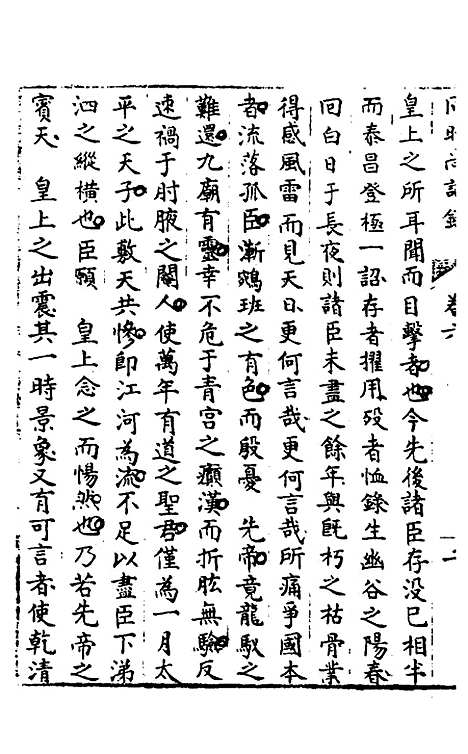 皇上之所耳聞而目擊者也今先後諸臣存没已相半
而泰昌登極一詔存者擢用殁者恤錄生幽谷之陽春
回白日于長夜則諸臣未盡之餘年與旣朽之枯骨業
得感風雷而見天日更何言哉更何言哉所痛爭國本
者流落孤臣漸鵷班之有色而殷憂 先帝竟龍馭之
難還九廟有靈幸不危于青宫之癲漢而折肱無驗反
速禍于肘腋之閹人使萬年有道之聖君僅為一月太
平之天子此敷天共慘即江河為流不足以盡臣下涕
泗之縱横也臣願 皇上念之而惕然也乃若先帝之
賓天 皇上之出震其一時景象又有可言者使乾清